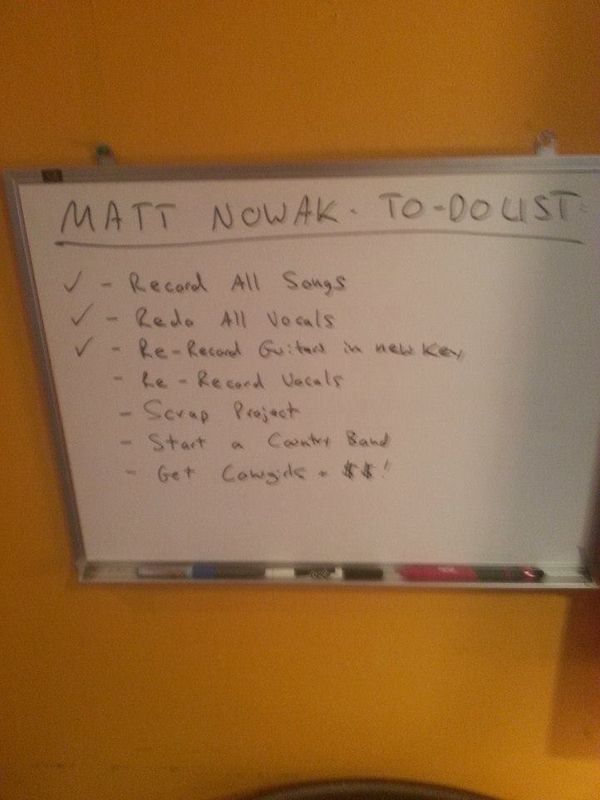 MATT NOWAK - TO-DO LIST:
✓ - Record All Songs
✓ - Redo All Vocals
✓ - Re-Record Guitars in new Key
- Re-Record Vocals
- Scrap Project
- Start a Country Band
- Get Cowgirls + $$!